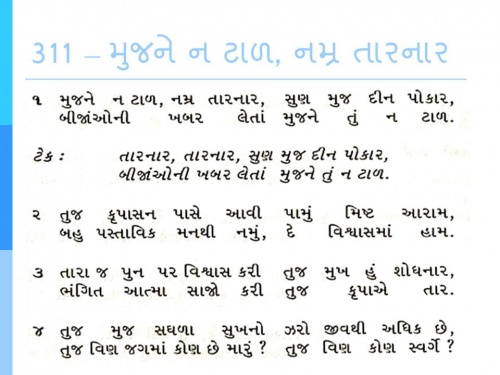 311 – મુજને ન ટાળ, નમ્ર તારનાર
૧ મુજને ન ટાળ, નમ્ર તારનાર, સુણ મુજ દીન પોકાર,
બીજાંઓની ખબર લેતાં મુજને તું ન ટાળ.
ટેક : તારનાર, તારનાર, સુણ મુજ દીન પોકાર,
બીજાંઓની ખબર લેતાં મુજને તું ન ટાળ.
૨ તુજ કૃપાસન પાસે આવી પામું મિષ્ટ આરામ,
બહુ પસ્તાવિક મનથી નમું, દે વિશ્વાસમાં હામ.
૩ તારા જ પુન પર વિશ્વાસ કરી તુજ મુખ હું શોધનાર,
ભંગિત આત્મા સાજો કરી તુજ કૃપાએ તાર.
૪ તુજ મુજ સઘળા સુખનો ઝરો જીવથી અધિક છે,
તુજ વિણ જગમાં કોણ છે મારું ? તુજ વિણ કોણ સ્વર્ગે ?